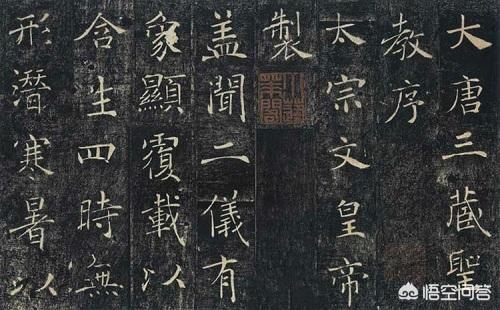 大唐三藏聖
教序
太宗文皇帝
製
盖聞二儀有
象顯覆載以
含生四時無
形潜寒暑以
悟空问答